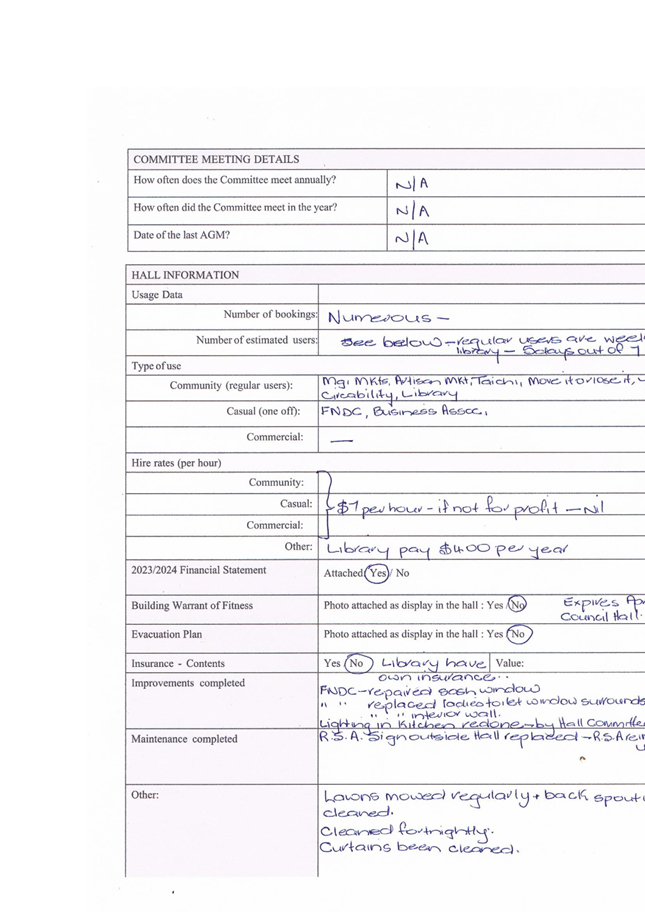 COMMITTEE MEETING DETAILS
How often does the Committee meet annually? N/A
How often did the Committee meet in the year? N/A
Date of the last AGM? N/A
HALL INFORMATION
Usage Data
Number of bookings: Numerous -
Number of estimated users: See below - regular users are
library - 5days out of 7
Type of use
Community (regular users): Mgi Mkts, Artisan Mkt, Taichi, Move it or lose it,
Circability, Library
Casual (one off): FNDC, Business Assoc,
Commercial: —
Hire rates (per hour)
Community:
Casual: $7 per hour - if not for profit - Nil
Commercial:
Other: Library pay $400 per year
2023/2024 Financial Statement Attached Yes / No
Building Warrant of Fitness Photo attached as display in the hall : Yes / No Expires
Council Hall.
Evacuation Plan Photo attached as display in the hall : Yes / No
Insurance - Contents Yes / No Library have Value:
own insurance..
Improvements completed FNDC - repaired sash window
" " replaced ladies toilet window surrounds
" " " interior wall.
Lighting in Kitchen redone - by Hall Committee
Maintenance completed R.S.A. Sign outside Hall replaced - R.S.A
Other: Lawns mowed regularly + back
cleaned.
Cleaned fortnightly.
Curtains been cleaned.